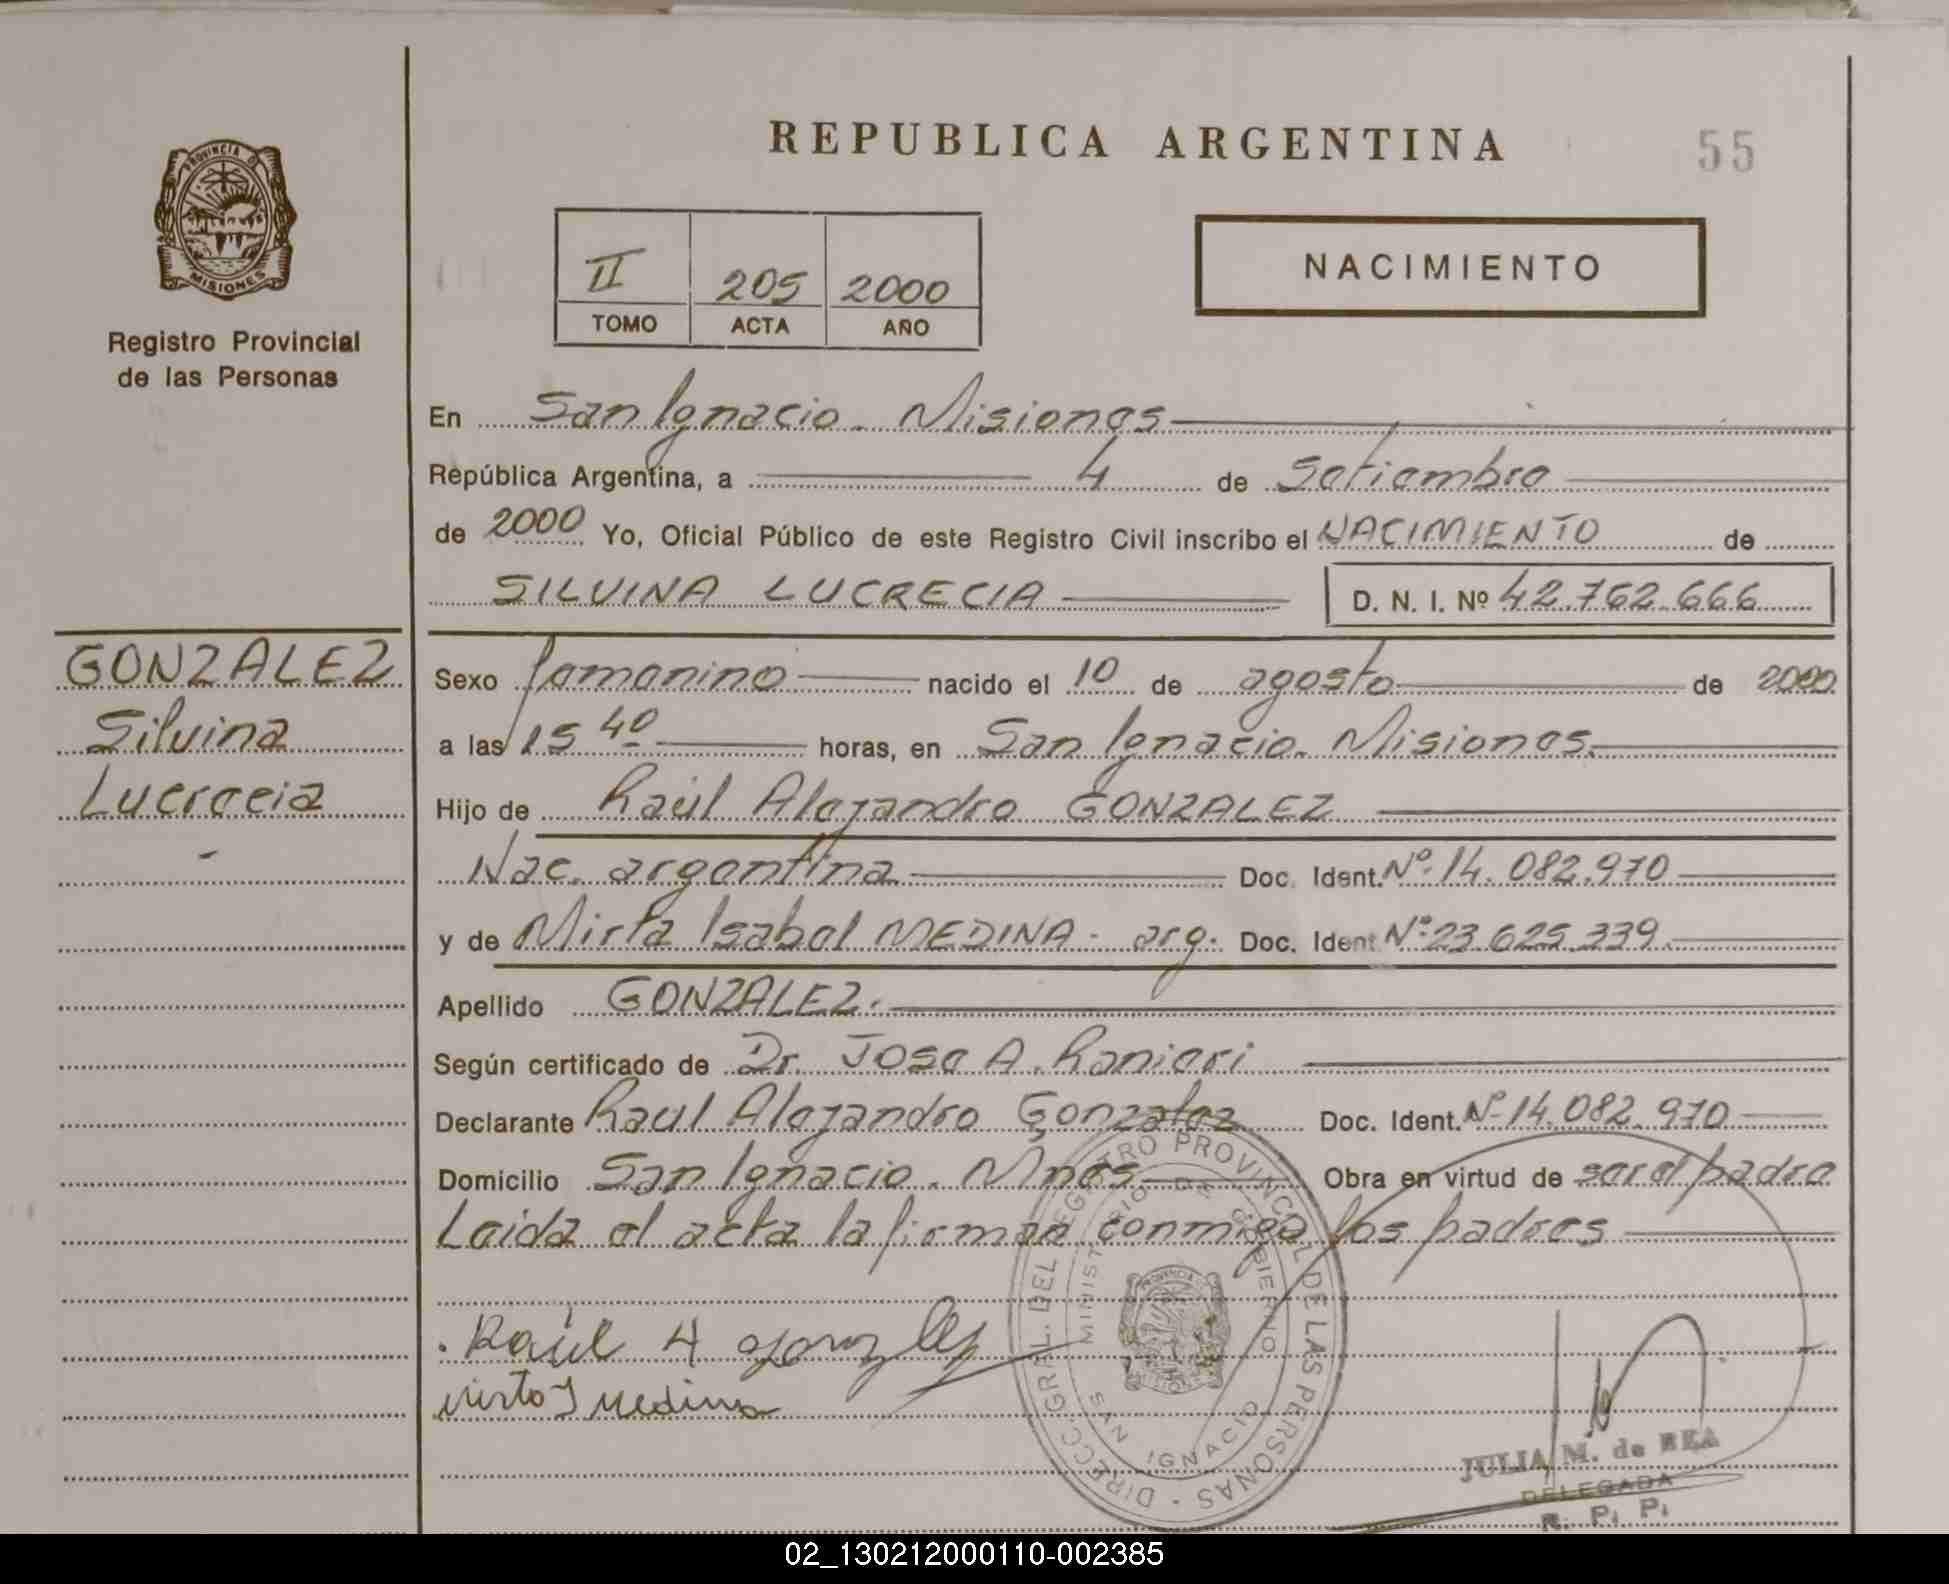 REPUBLICA ARGENTINA
55
PROVINCIA D
MISIONES
Registro Provincial
de las Personas
II 205 2000
TOMO ACTA AÑO
NACIMIENTO
En San Ignacio. Misiones
República Argentina, a 4 de Setiembre
de 2000 Yo, Oficial Público de este Registro Civil inscribo el NACIMIENTO de
SILVINA LUCRECIA D. N. I. Nº 42.762.666
GONZALEZ
Silvina
Lucrecia
Sexo femenino nacido el 10 de agosto de 2000
a las 15 40 horas, en San Ignacio. Misiones.
Hijo de Raúl Alejandro GONZALEZ
Nac. argentina Doc. Ident. Nº. 14.082.970
y de Mirta Isabel MEDINA - arg. Doc. Ident Nº 23.625.339.
Apellido GONZALEZ.
Según certificado de Dr. Jose A. Ranieri
Declarante Raul Alejandro Gonzalez Doc. Ident. Nº 14.082.970
Domicilio San Ignacio. Mnes Obra en virtud de ser el padre
Leida el acta la firman conmigo los padres
Raúl A gonzalez
Mirta I Medina
DIRECC. GRAL. DEL REGISTRO PROVINCIAL DE LAS PERSONAS
MINISTERIO DE GOBIERNO
SAN IGNACIO
JULIA M. de REA
DELEGADA
R. P. P.
02_130212000110-002385